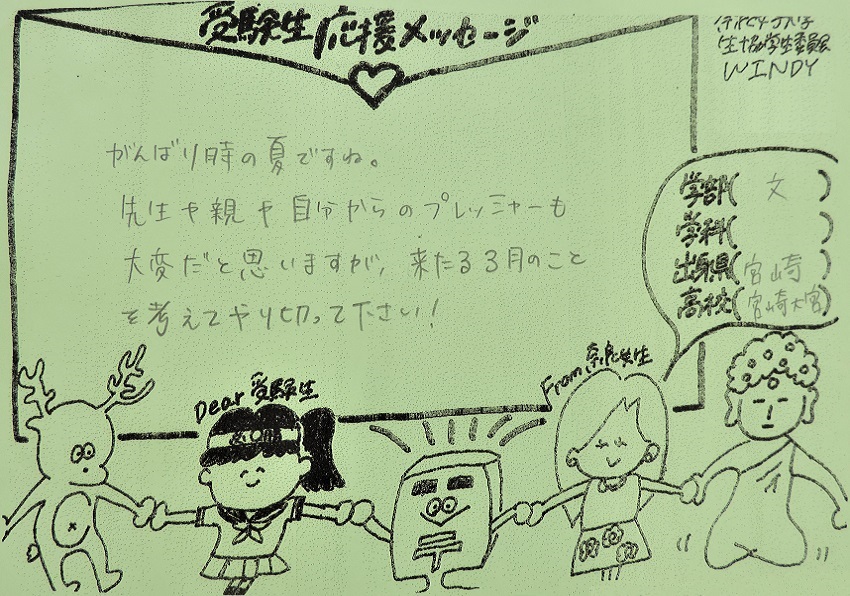 受験生応援メッセージ
生協学生委員会
WINDY
がんばり時の夏ですね。
先生や親や自分からのプレッシャーも
大変だと思いますが、来たる3月のこと
を考えてやり切って下さい!
学部( 文 )
学科( )
出身県( 宮崎 )
高校( 宮崎大宮 )
Dear 受験生
From 奈良女生
必勝
〒